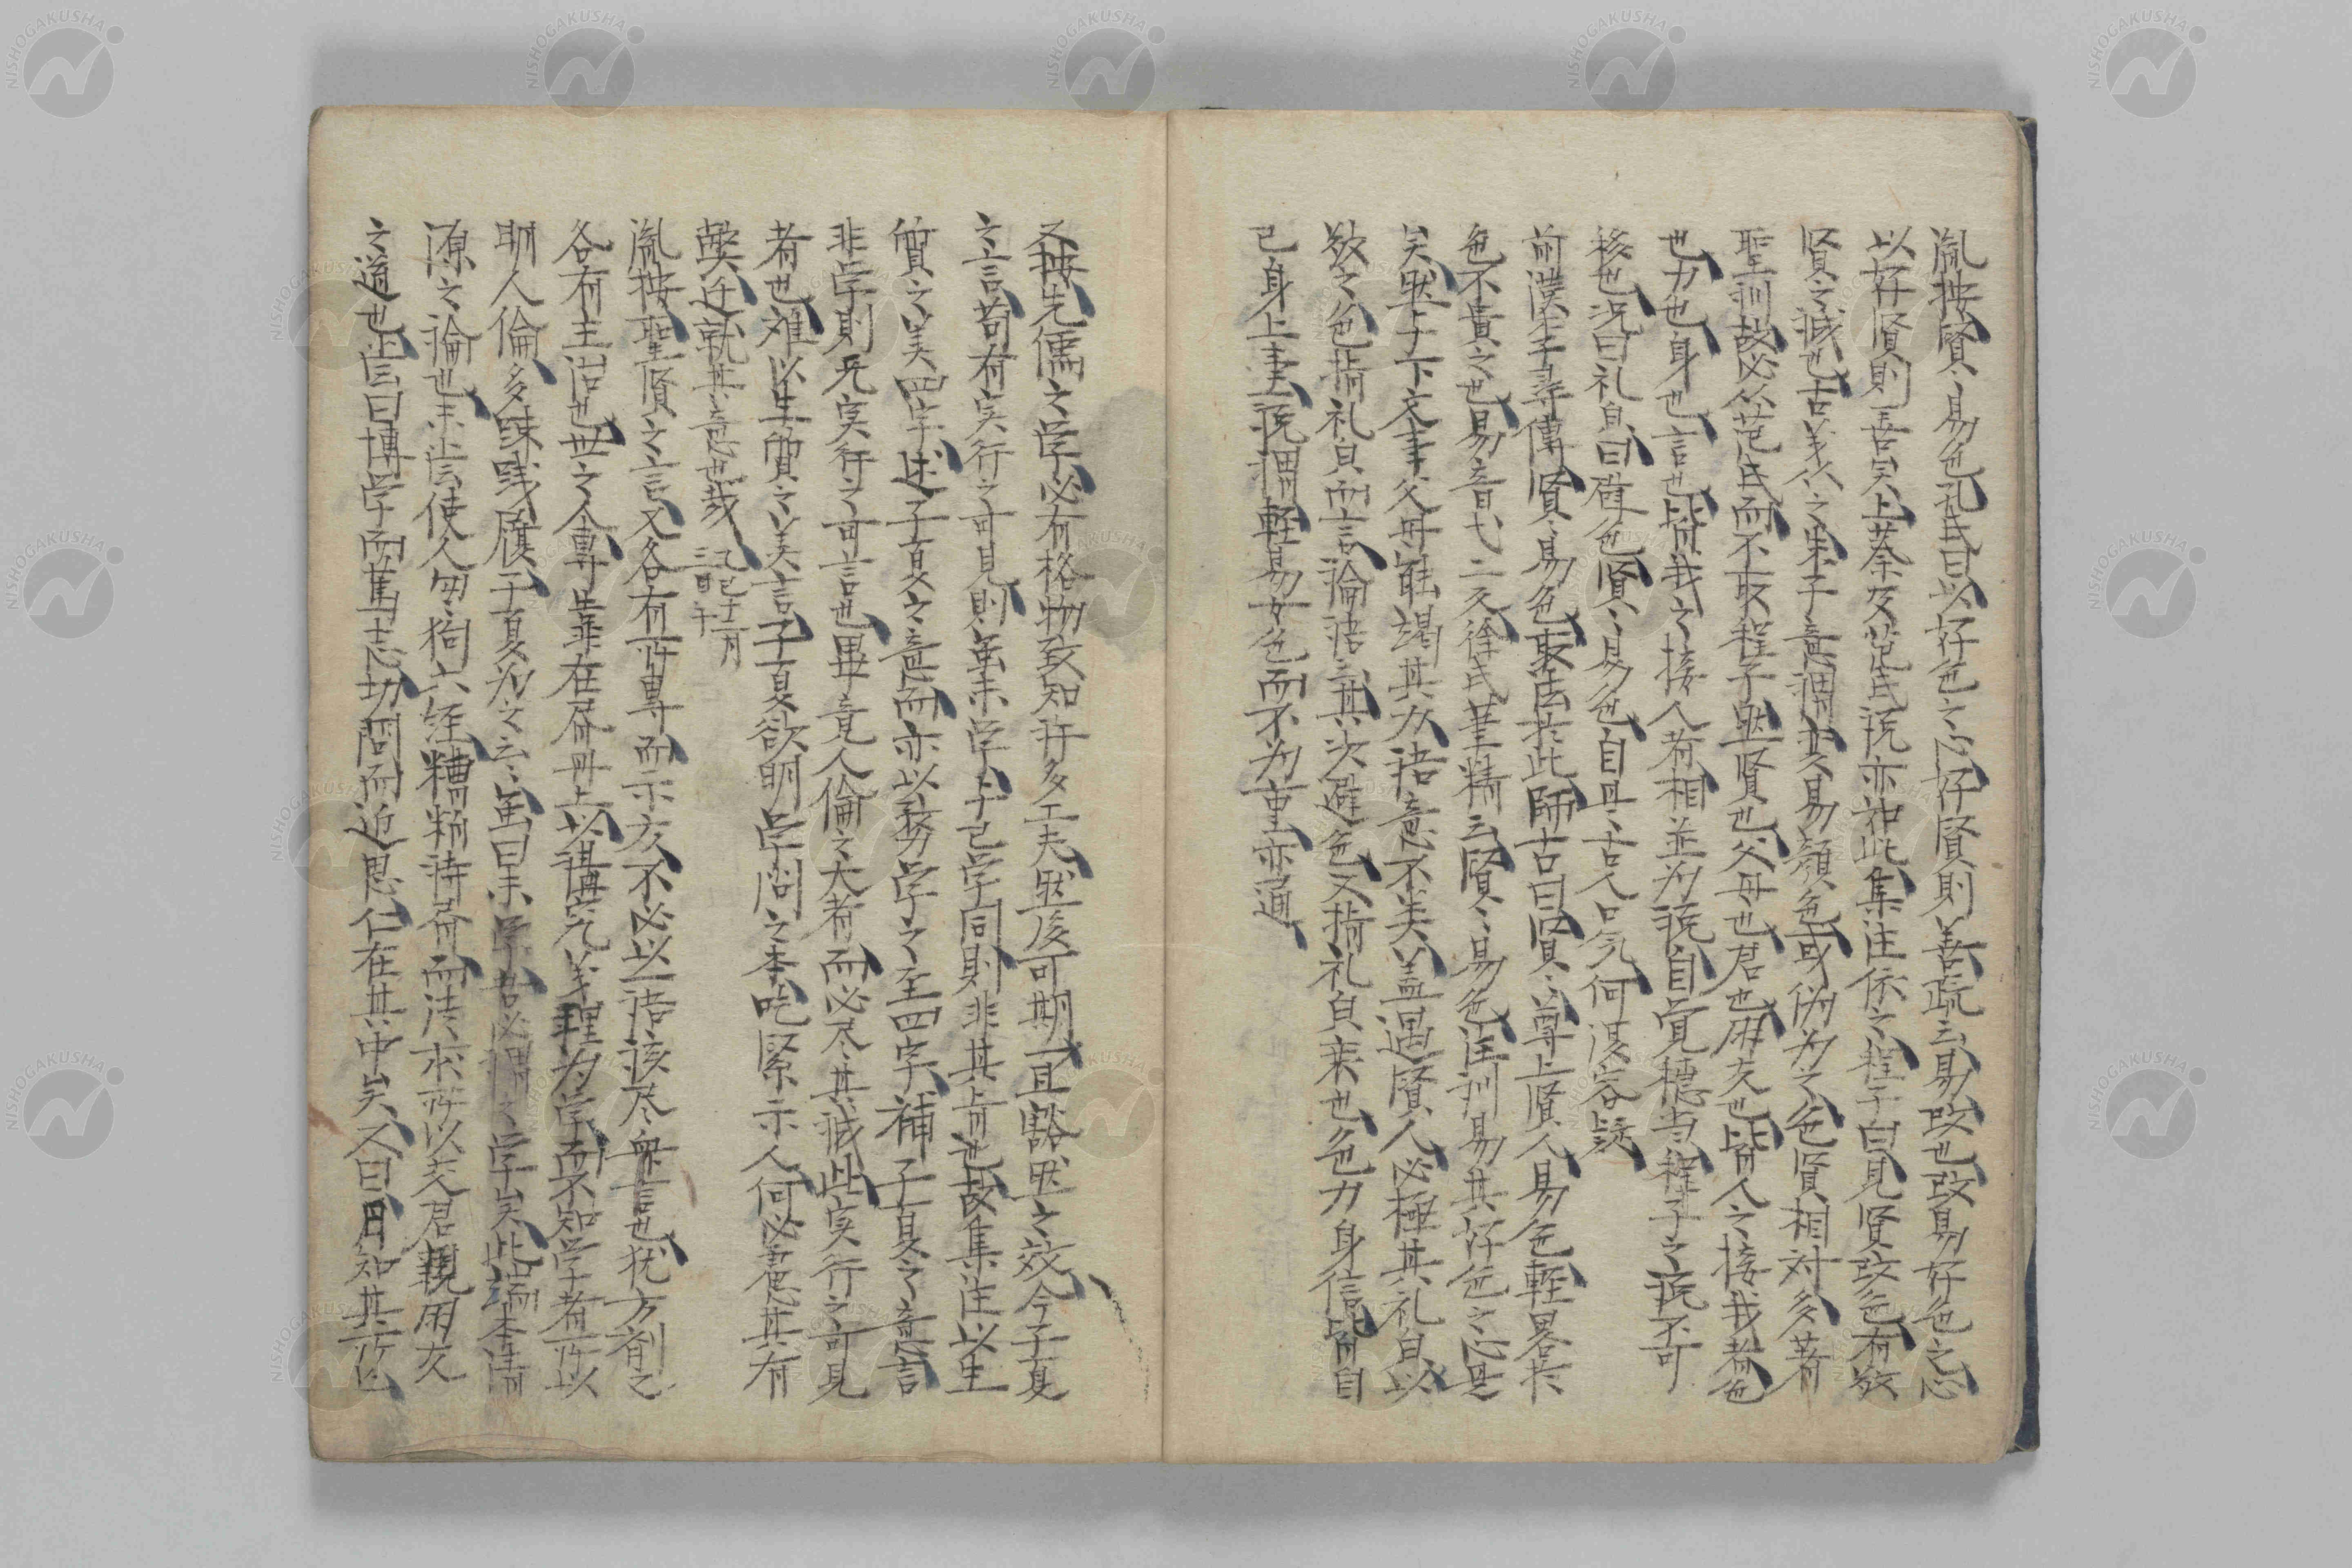 胤按賢〻易色孔氏曰以好色之心好賢則善疏云易改也改易好色之心
以好賢則善矣上蔡及范氏説亦如此集注依之程子曰見賢改色有敬
賢之誠也古義从之朱子意謂変易顔色或偽为之色賢相対多著
聖訓故必从范氏而不取程子然賢也父母也君也朋友也皆人之接我者色
也力也身也言也皆我之接人者相並为説自覚穏当程子之説不可
移也況曰礼皃曰辞色賢〻易色自是古人口気何復容疑
前漢李尋傳賢〻易色取法於此師古曰賢〻尊上賢人易色軽畧於
色不貴之也易音弋二反徐氏筆精云賢〻易色注訓易其好色之心是
矣然与下文事父母能竭其力語意不类盖遇賢人必極其礼皃以
敬之色指礼皃而言論語云其次避色又指礼皃来也色力身信皆自
己身上事説謂軽易女色而不为重亦通
又按先儒之学必有格物致知許多工夫然後可期一旦豁然之效今子夏
之言苟有実行之可見則虽未学与已学同則非其旨也故集注以生
質之美四字述子夏之意而亦以務学之至四字補子夏之意言
非学則无実行之可言也畢竟人倫之大者而必尽其誠此実行之可見
者也难以生質之美言子夏欲明学問之本吃緊示人何必慮其有
弊迁就其意也哉
乙巳十二月
三日午
胤按聖賢之言又各有所専而示亥不必以一語該尽無言也犹方剤之
各有主治也世之人専靠在屑毋上以講究義理为学而不知学者所以
明人倫多疎践履子夏为之云〻虽曰未学吾必謂之学矣此端本清
源之論也未嘗使人匆〻狥六経糟粕待屑而法求所以夫君親朋友
之道也嘗曰博学而篤志切問而近思仁在其中矣又曰日知其所亡